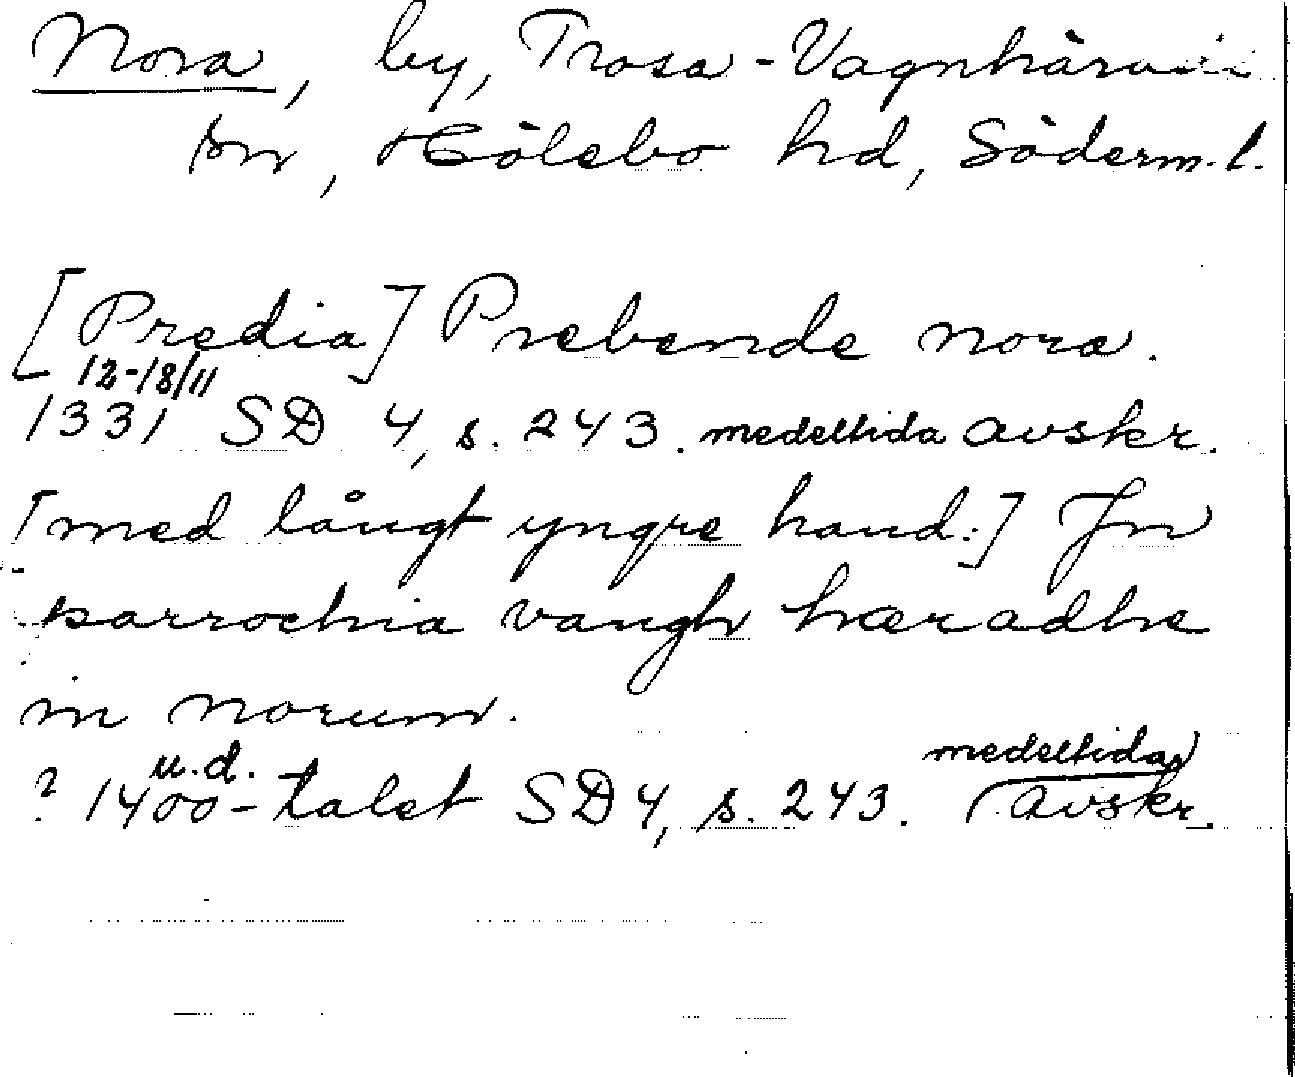 Nora, by, Trosa-Vagnhärads
sn, Hölebo hd, Söderm.l.
[Predia] Prebende nora.
12-18/11
1331 SD 4, s. 243. medeltida avskr.
[med långt yngre hand:] Jn
parrochia vangh hæradhe
in norum.
u.d. medeltida
? 1400-talet SD 4, s. 243. avskr.